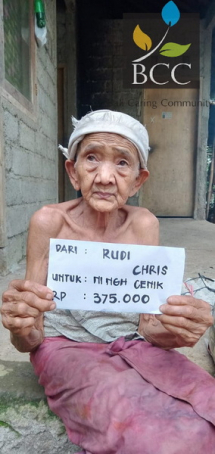 BCC
Caring Communi
DARI : RUDI
CHRIS
UNTUK : NI NGH CENIK
RP : 375.000